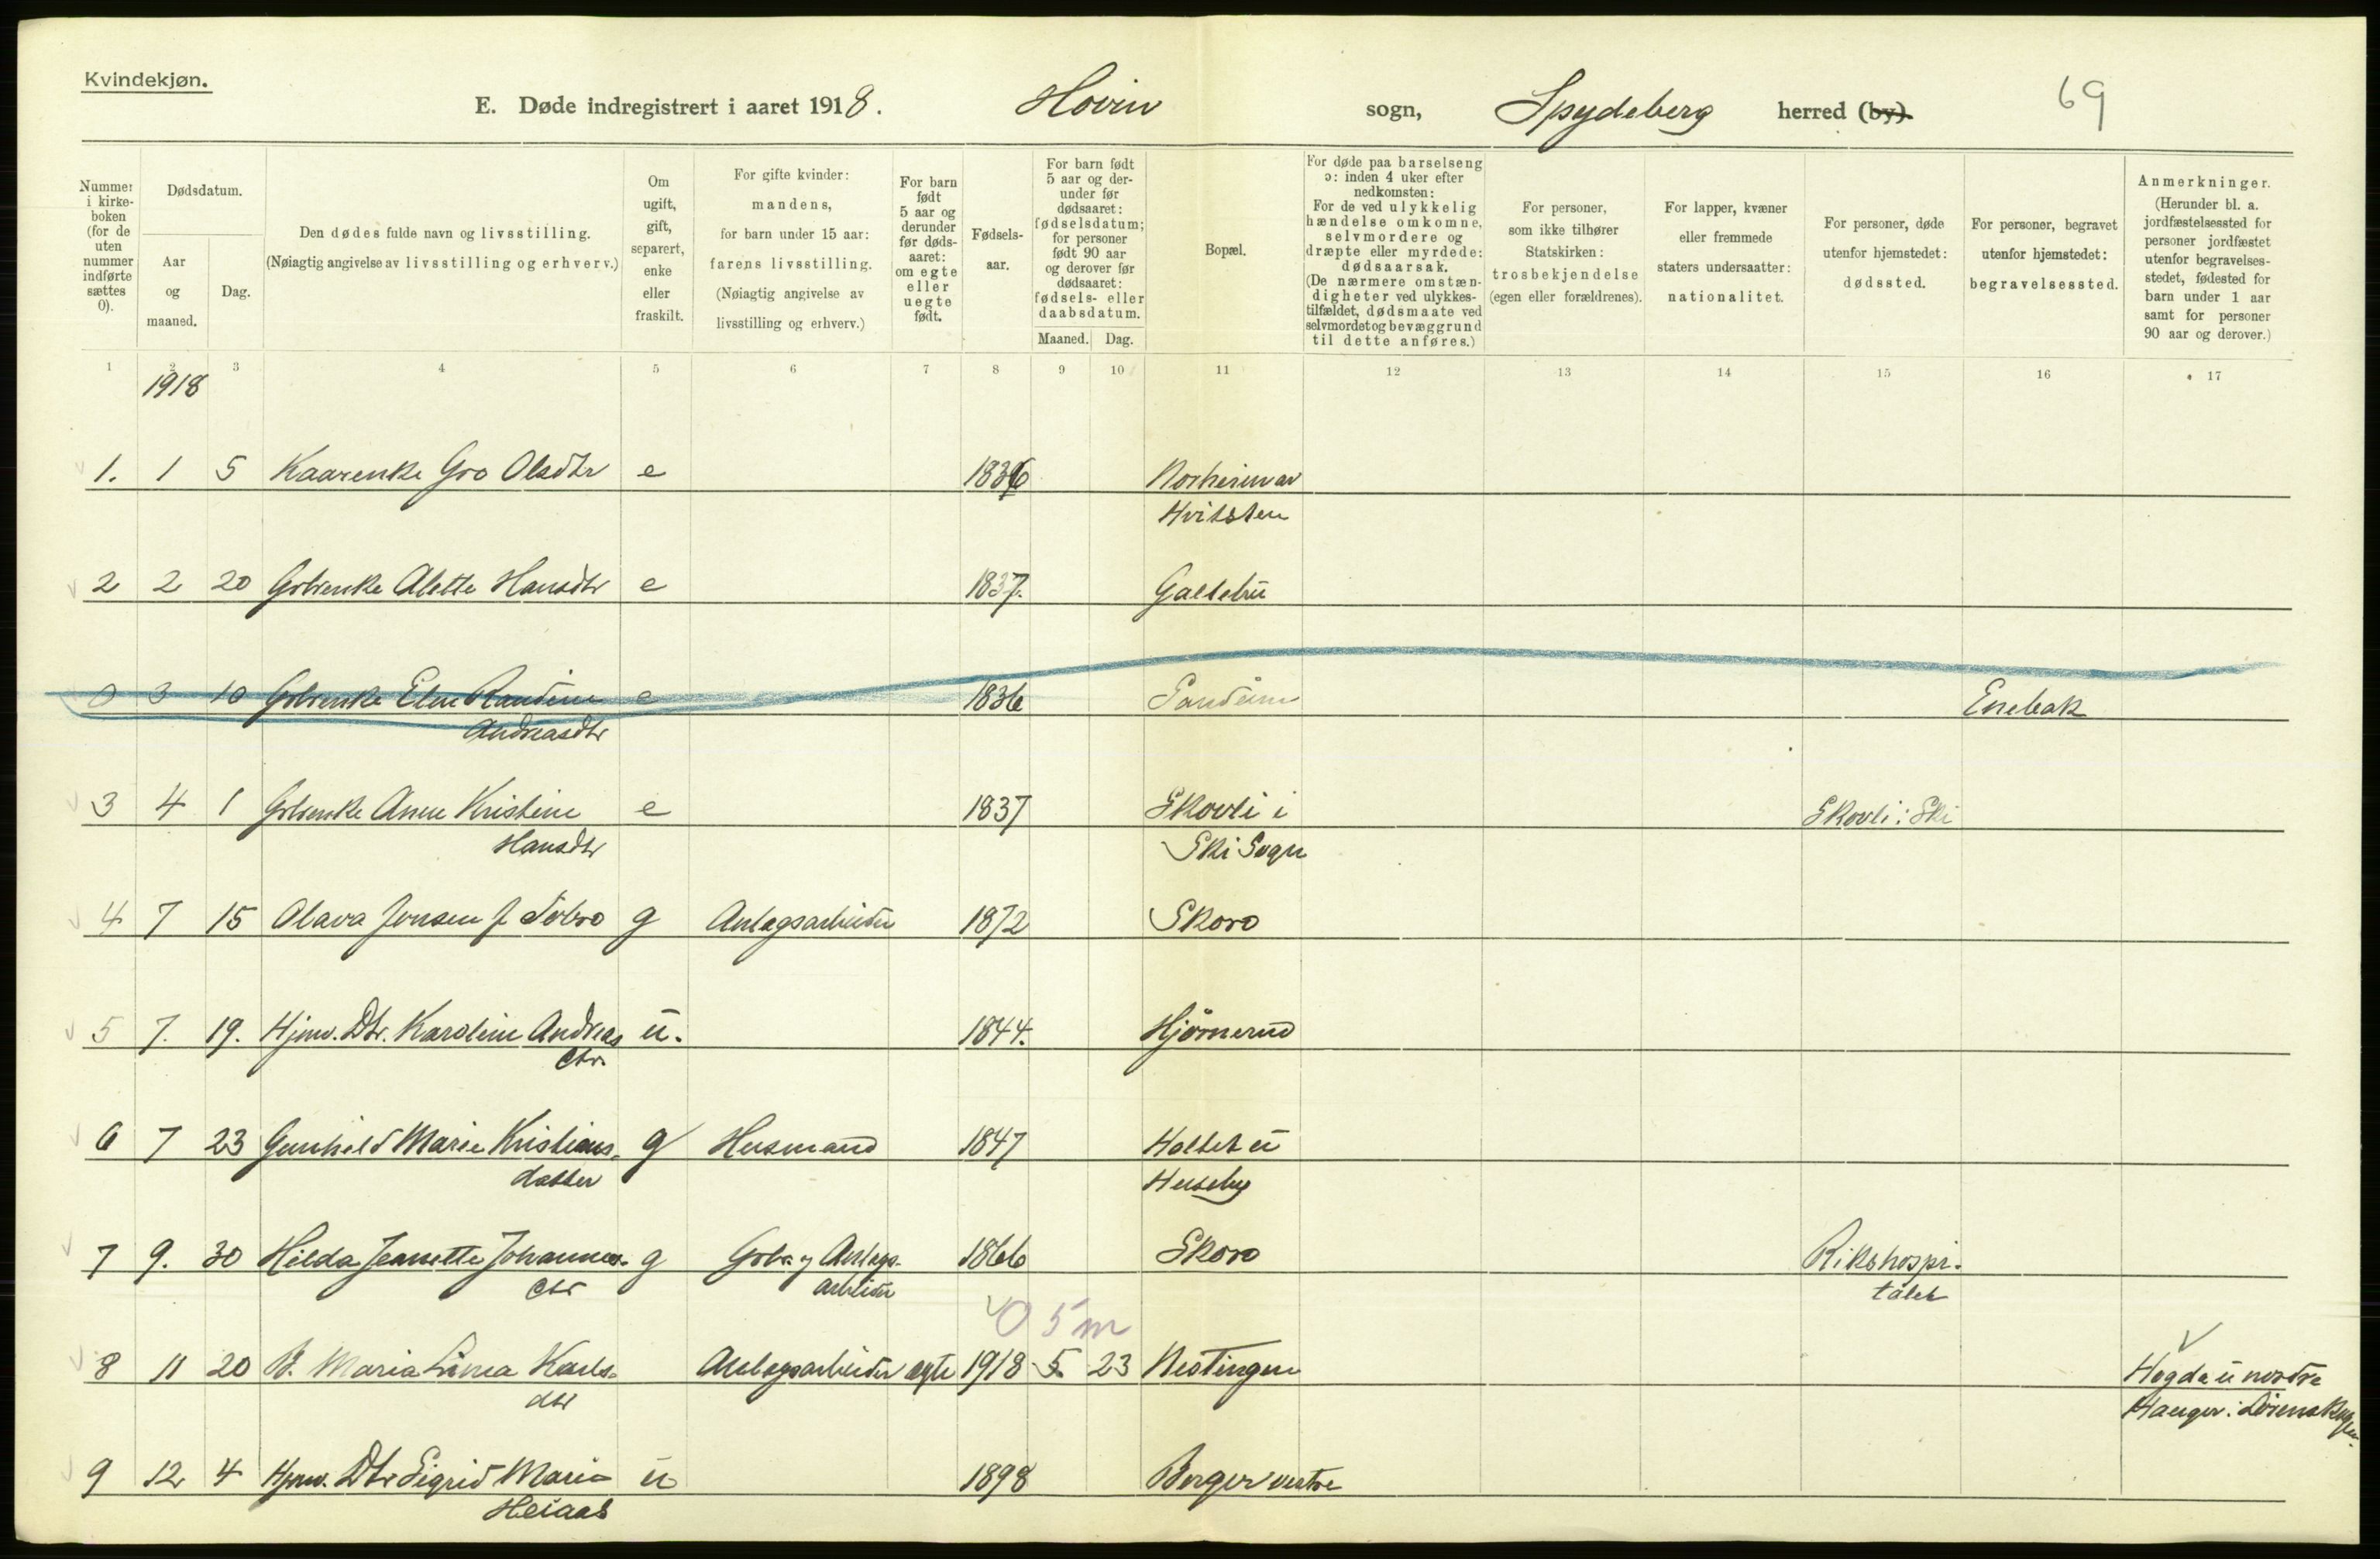 Kvindekjøn.
E. Døde indregistrert i aaret 1918. Hovin sogn, Spydeberg herred (by).
69
Nummer i kirkeboken (for de uten nummer indførte sættes 0).
Dødsdatum.
Aar og maaned.
Dag.
Den dødes fulde navn og livsstilling.
(Nøiagtig angivelse av livsstilling og erhverv.)
Om ugift, gift, separert, enke eller fraskilt.
For gifte kvinder: mandens, for barn under 15 aar: farens livsstilling.
(Nøiagtig angivelse av livsstilling og erhverv.)
For barn født 5 aar og derunder før dødsaaret: om egte eller uegte født.
Fødselsaar.
For barn født 5 aar og derunder før dødsaaret: fødselsdatum; for personer født 90 aar og derover før dødsaaret: fødsels- eller daabsdatum.
Maaned. Dag.
Bopæl.
For døde paa barselseng ɔ: inden 4 uker efter nedkomsten:
For de ved ulykkelig hændelse omkomne, selvmordere og dræpte eller myrdede: dødsaarsak.
(De nærmere omstændigheter ved ulykkestilfældet, dødsmaate ved selvmordet og bevæggrund til dette anføres.)
For personer, som ikke tilhører Statskirken: trosbekjendelse (egen eller forældrenes).
For lapper, kvæner eller fremmede staters undersaatter: nationalitet.
For personer, døde utenfor hjemstedet: dødssted.
For personer, begravet utenfor hjemstedet: begravelsessted.
Anmerkninger.
(Herunder bl. a. jordfæstelsessted for personer jordfæstet utenfor begravelsesstedet, fødested for barn under 1 aar samt for personer 90 aar og derover.)
1 2 3 4 5 6 7 8 9 10 11 12 13 14 15 16 17
1918
1. 1 5 Kaarenke Gro Olsdtr e 1836 Norheim av
Hvitsten
2 2 20 Gbrenke Alette Hansdtr e 1837. Galtebu
0 3 10 Gbrenke Elen Randine e 1836 Enebak
Andreasdtr
3 4 1 Gbrenke Anne Kristine e 1837 Skovli i Skovli i Ski
Hansdtr Ski Sogn
4 7 15 Olava Jensen f. g Anlagsarbeider 1872 Skoro
5 7. 19. Hjmv. Dtr. Karoline Andreas u. 1844.
dtr.
6 7 23 Gunhild Marie Kristians- g Husmand 1847 Holtet u
datter Huseby
7 9. 30 Hilda Jeanette Johannes- g Gbr. og Anlags- 1866 Skoro Rikshospi-
dtr arbeider talet
0 5 m
8 11 20 B. Maria Karls- Anlagsarbeider egte 1918 5 23 Nestingen Høgda u nordre
dtr Hauger i Lørenskogen.
9 12 4 Hjmv. Dtr Sigrid Marie u 1898 Berger vestre
Heiaas